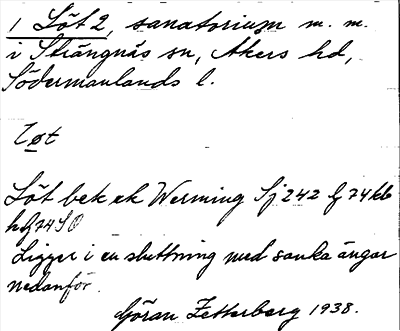 1 Löt 2, sanatorium m. m.
i Strängnäs sn, Åkers hd,
Södermanlands l.
Löt bek ek Werming Sj 242
Ligger i en sluttning med sanka ängar
nedanför.
Göran Zetterberg 1938.